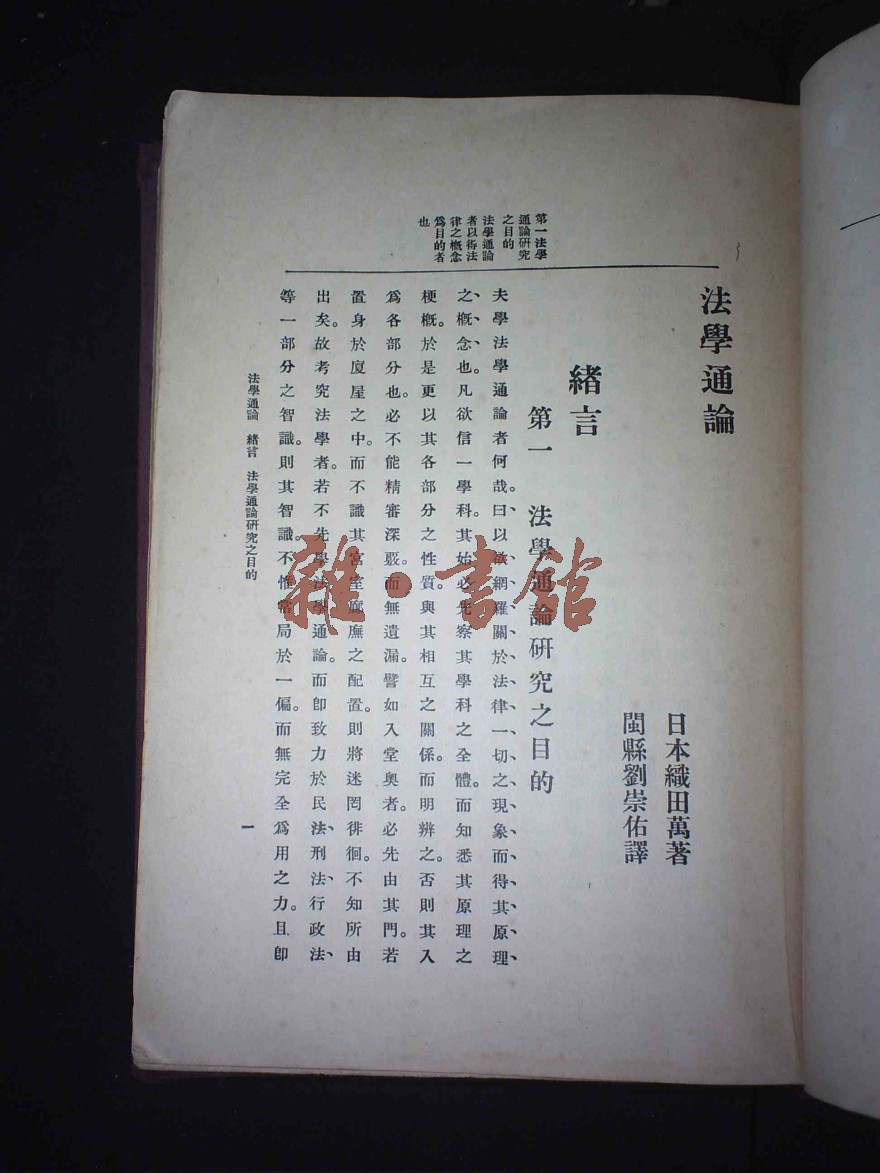 法學通論
日本織田萬著
閩縣劉崇佑譯
緒言
第一 法學通論研究之目的
第一法學
通論研究
之目的
法學通論
者以得法
律之概念
爲目的者
也
夫學法學通論者何哉。曰、以欲網羅關於法律一切之現象而得其原理、
之、概、念、也。凡欲信一學科。其始必先察其學科之全體。而知悉其原理之
梗概。於是更以其各部分之性質。與其相互之關係。而明辨之。否則其入
爲各部分也。必不能精審深覈。而無遺漏。譬如入堂奥者。必先由其門。若
置身於廈屋之中。而不識其宮室廊廡之配置。則將迷罔徘徊。不知所由
出矣。故考究法學者。若不先學法學通論。而卽致力於民法、刑法、行政法、
等一部分之智識。則其智識。不惟常局於一偏。而無完全爲用之力。且卽
法學通論 緒言 法學通論研究之目的
一
雜·書館